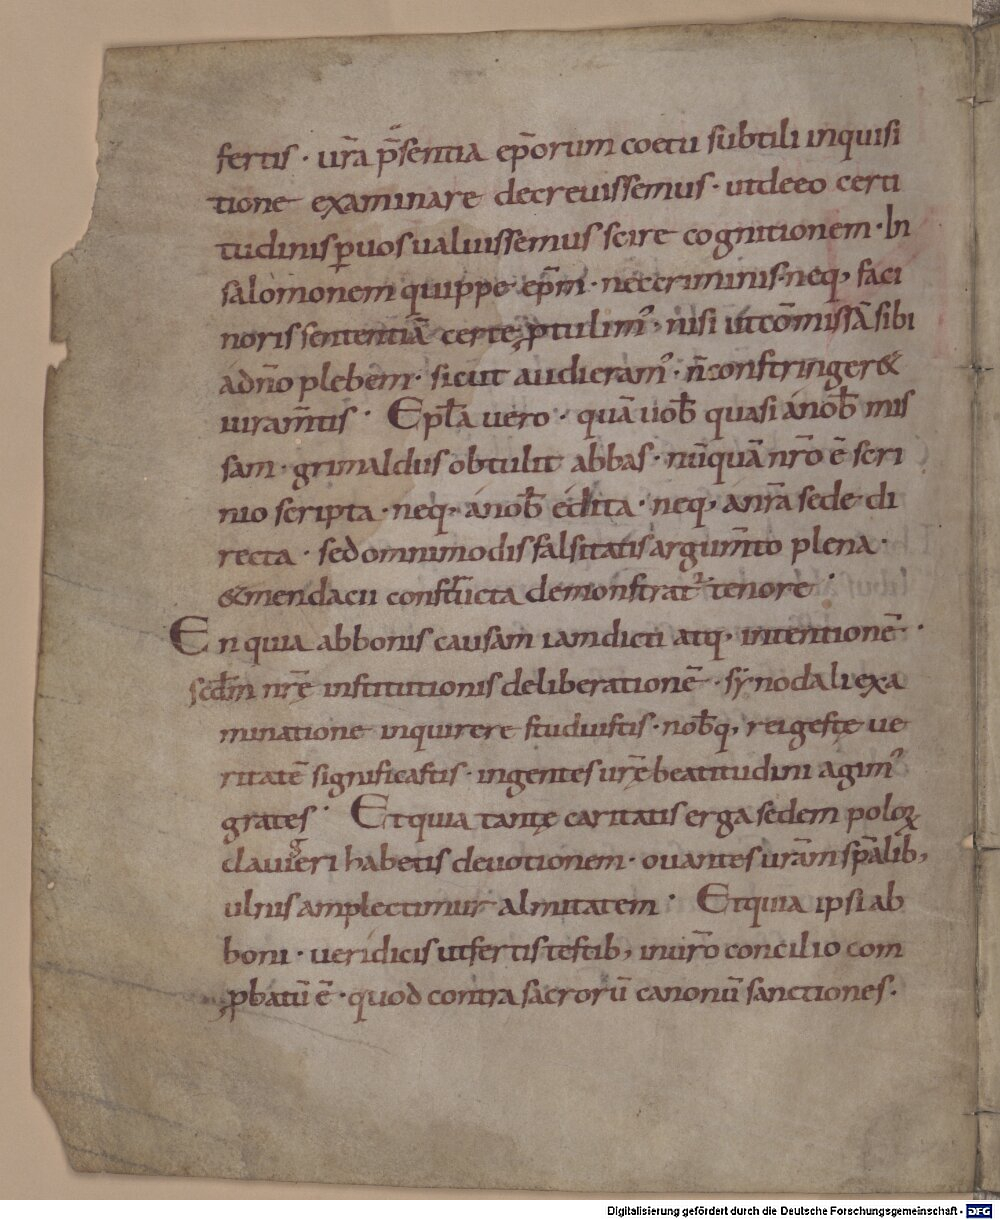 fertis · ur̄a p̄sentia ep̄orum coetu subtili inquisi
tione examinare decrevissemus · utdeeo certi
tudinis ꝑuos valuissemus scire cognitionem · In
salomonem quippe ep̄m · nec criminis · neq; faci
noris sententiā certę ꝓtulim᾿, nisi utcōmissā sibi
adn̄o plebem · sicut audieram᾿ · n̄ constringer&
iuram̄tis · Epl̄a vero · quā uob̄ quasi anob̄ mis
sam · grimaldus obtulit abbas · nūquā nr̄o ē scri
nio scripta · neq; anob̄ edita · neq; anr̄a sede di
recta · sed omnimodis falsitatis argum̄to plena ·
&mendacii constructa demonstrat᾿ tenore ·
En quia abbonis causam iamdicti atq; intentionē ·
scd̄m nr̄ę institutionis deliberationē · synodali exa
minatione inquirere studuistis · nob̄q; rei gestę ue
ritatē significastis · ingentes ur̄ę beatitudini agim᾿
grates · Et quia tantę caritatis erga sedem poloꝝ
clauigeri habetis devotionem · ovantes ur̄am sp̄alib;
ulnis amplectimur almitatem · Et quia ipsi ab
boni · veridicis utfertis testib; inur̄o concilio com
ꝓbatū ē · quod contra sacrorū canonū sanctiones ·
Digitalisierung gefördert durch die Deutsche Forschungsgemeinschaft - DFG